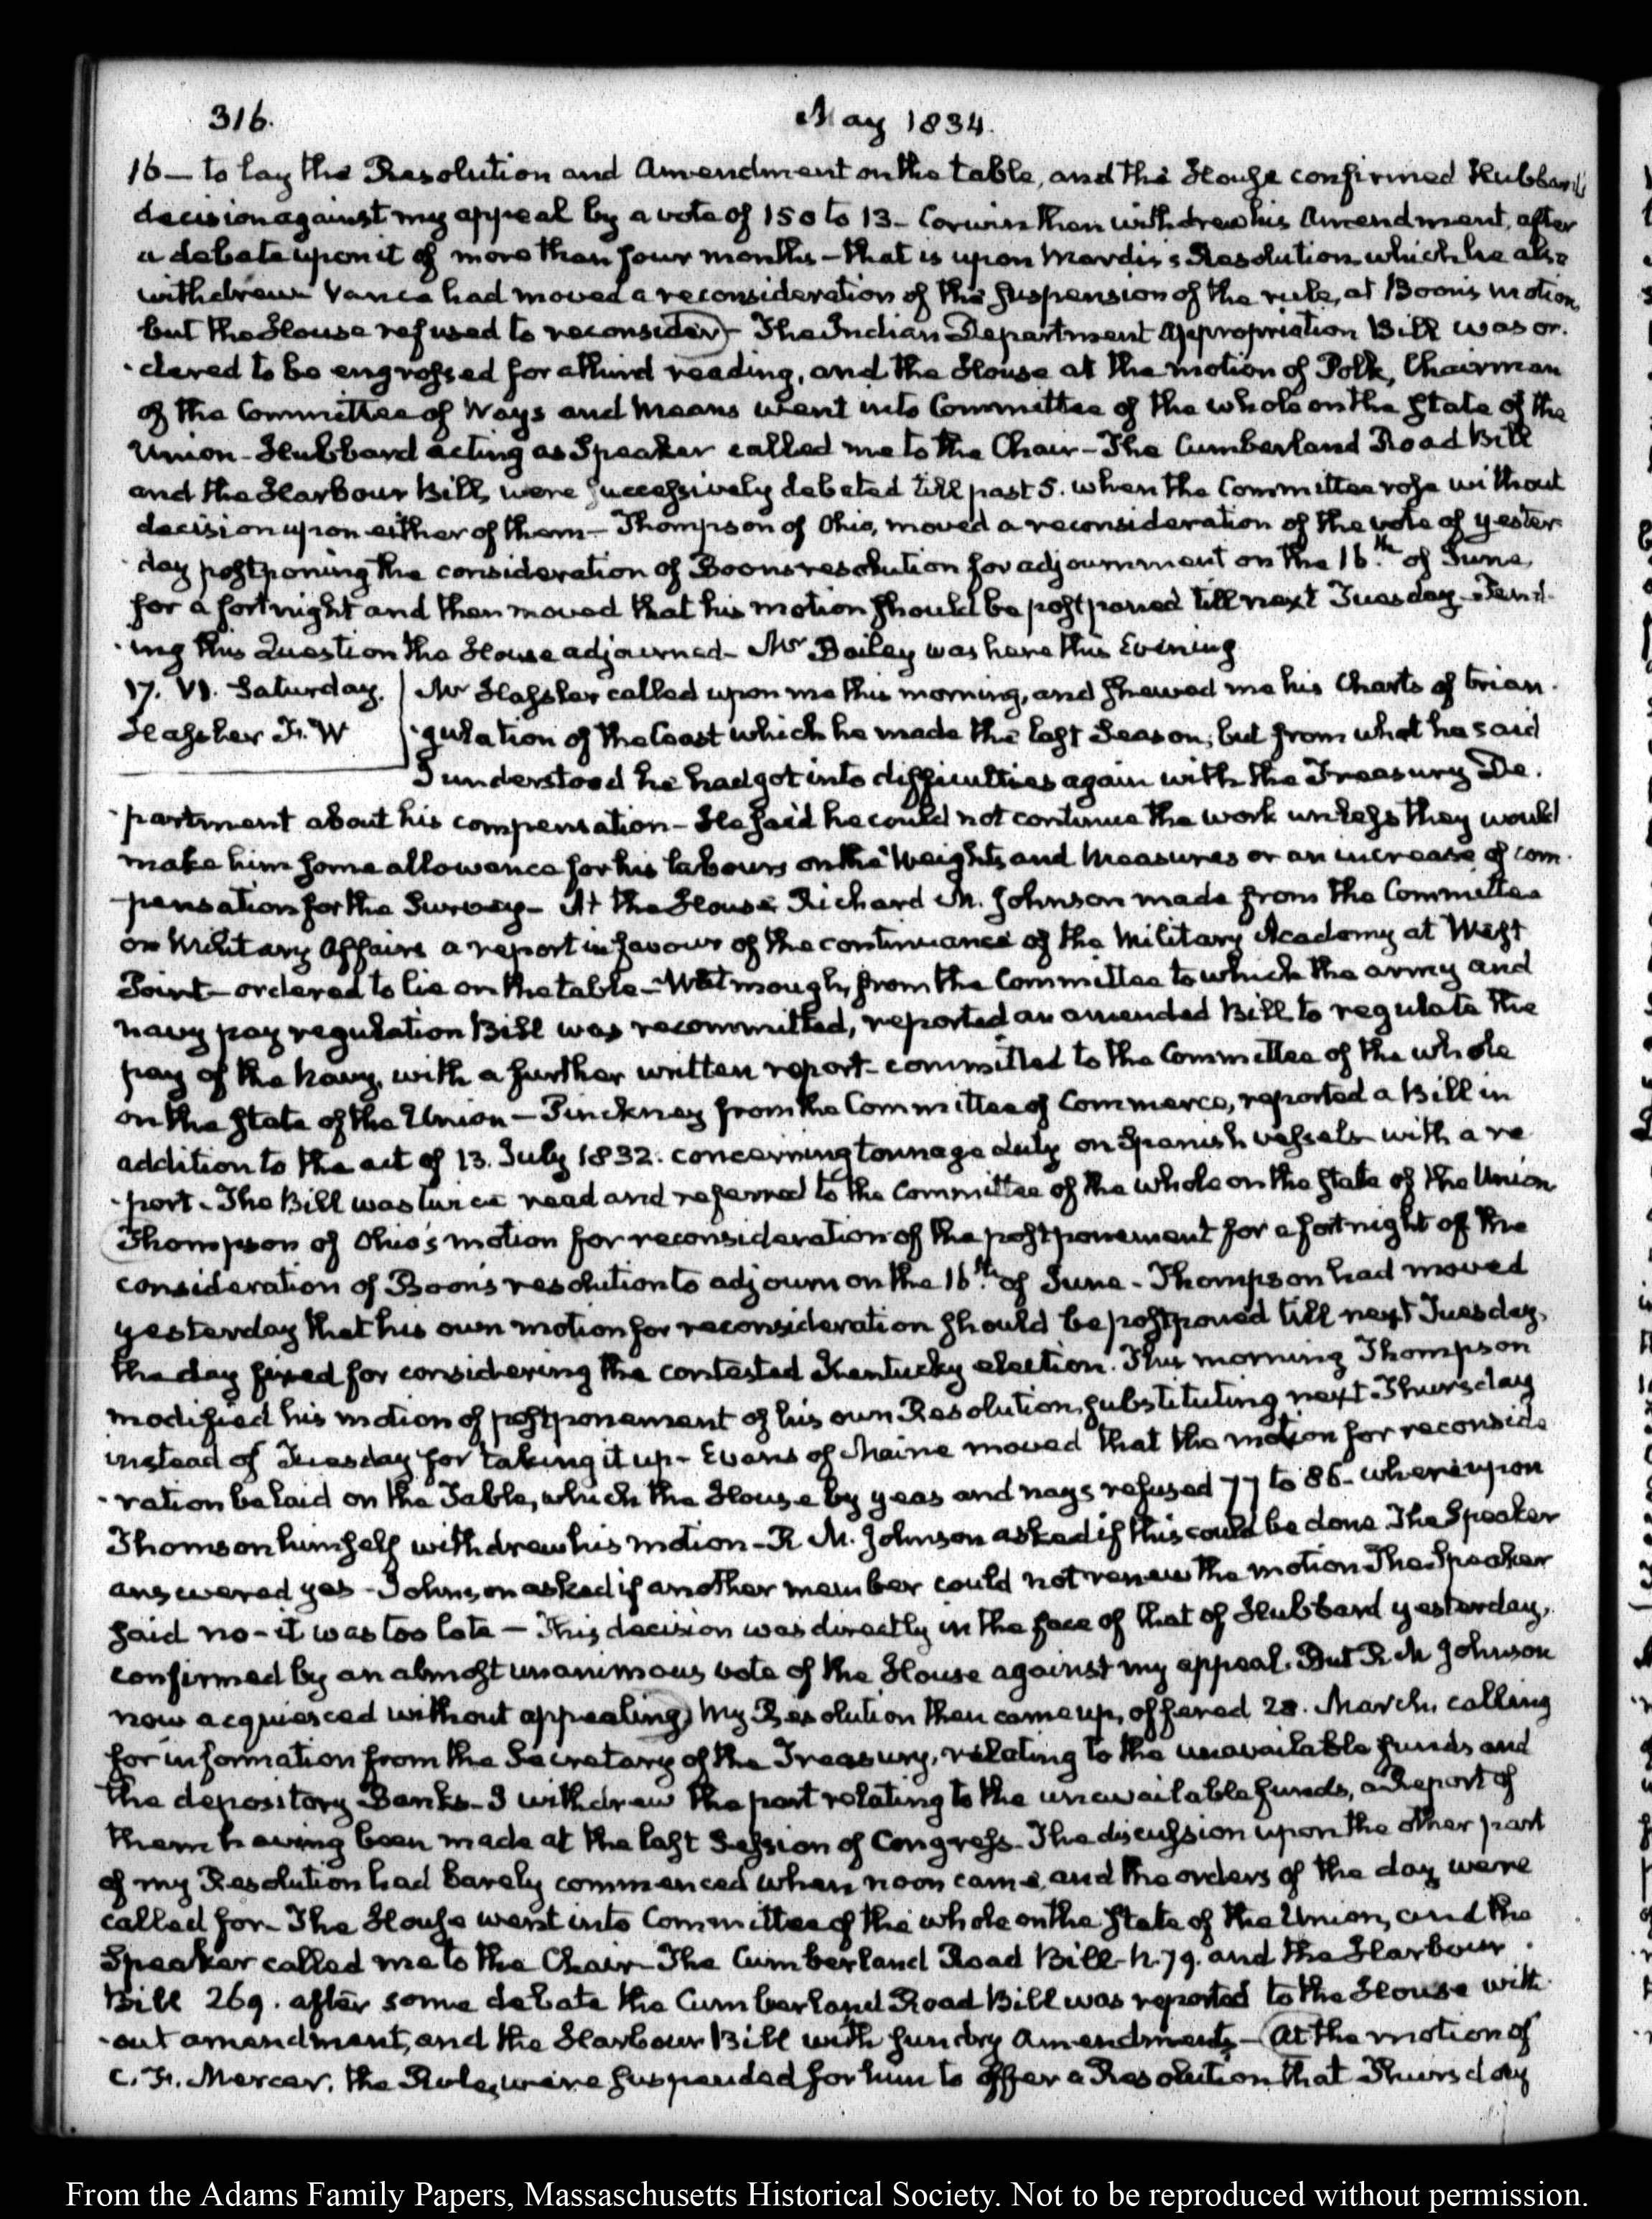 316.
May 1834.
16— to lay the Resolution and Amendment on the table, and the House confirmed Hubbard's
decision against my appeal by a vote of 150 to 13— Corwin then withdrew his Amendment, after
a debate upon it of more than four months— that is upon Mardis's Resolution which he also
withdrew Vance had moved a reconsideration of the suspension of the rule, at Boon's motion,
but the House refused to reconsider)— The Indian Department Appropriation Bill was or-
-dered to be engrossed for a third reading, and the House at the motion of Polk, Chairman
of the Committee of Ways and Means went into Committee of the whole on the State of the
Union— Hubbard acting as Speaker called me to the Chair— The Cumberland Road Bill
and the Harbour Bill, were successively debated till past 5. when the Committee rose without
decision upon either of them— Thompson of Ohio, moved a reconsideration of the vote of yester
-day postponing the consideration of Boons resolution for adjournment on the 16.th of June,
for a fortnight and then moved that his motion should be postponed till next Tuesday— Pend-
-ing this Question the House adjourned— Mr Bailey was here this Evening
17. VI. Saturday.
Hassler F. W
Mr Hassler called upon me this morning, and shewed me his Charts of trian-
-gulation of the Coast which he made the last Season; but from what he said
I understood he had got into difficulties again with the Treasury De-
-partment about his compensation— He said he could not continue the work unless they would
make him some allowance for his labours on the Weights and Measures or an increase of com-
-pensation for the Survey— At the House Richard M. Johnson made from the Committee
on Military Affairs a report in favour of the continuance of the Military Academy at West
Point— ordered to lie on the table— Watmough, from the Committee to which the army and
navy pay regulation Bill was recommitted, reported an amended Bill to regulate the
pay of the Navy, with a further written report— committed to the Committee of the whole
on the State of the Union— Pinckney from the Committee of Commerce, reported a Bill in
addition to the act of 13. July 1832. concerning tonnage duty on Spanish vessels with a re
-port— The Bill was twice read and referred to the Committee of the whole on the State of the Union
(Thompson of Ohio's motion for reconsideration of the postponement for a fortnight of the
consideration of Boon's resolution to adjourn on the 16.th of June— Thompson had moved
yesterday that his own motion for reconsideration should be postponed till next Tuesday,
the day fixed for considering the contested Kentucky election. This morning Thompson
modified his motion of postponement of his own Resolution, substituting next Thursday
instead of Tuesday for taking it up— Evans of Maine moved that the motion for reconside
-ration be laid on the Table, which the House by yeas and nays refused 77 to 86— whereupon
Thomson himself withdrew his motion— R. M. Johnson asked if this could be done. The Speaker
answered yes— Johnson asked if another member could not renew the motion The Speaker
said no— it was too late— This decision was directly in the face of that of Hubbard yesterday,
confirmed by an almost unanimous vote of the House against my appeal. But R M Johnson
now acquiesced without appealing) My Resolution then came up, offered 28. March, calling
for information from the Secretary of the Treasury, relating to the unavailable funds and
the depository Banks— I withdrew the part relating to the unavailable funds, a Report of
them having been made at the last Session of Congress— The discussion upon the other part
of my Resolution had barely commenced when noon came, and the orders of the day were
called for— The House went into Committee of the whole on the State of the Union, and the
Speaker called me to the Chair— The Cumberland Road Bill— N. 79. and the Harbour
Bill 269. after some debate the Cumberland Road Bill was reported to the House with-
-out amendment, and the Harbour Bill with sundry Amendments— (At the motion of
C. F. Mercer, the Rules, were suspended for him to offer a Resolution that Thursday
From the Adams Family Papers, Massachusetts Historical Society. Not to be reproduced without permission.